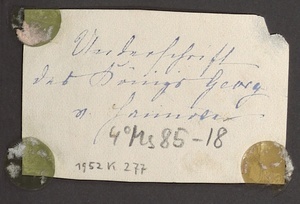 Unterschrift
des Königs Georg
v. Hannover
4° Ms 85-18
1952 K 277